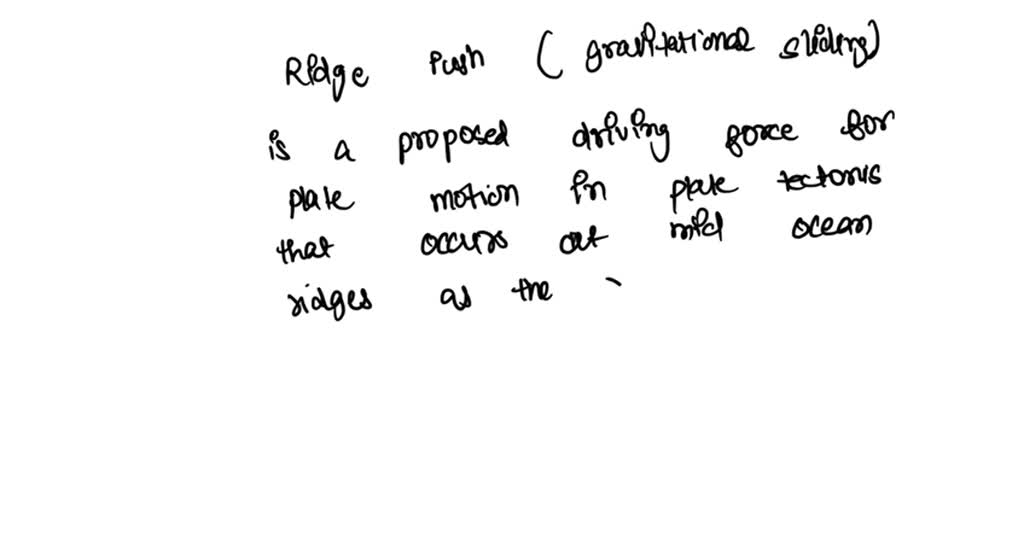 Ridge Push (gravitational sliding)
is a proposed driving force for
plate motion in plate tectonis
that occurs at mid ocean
ridges as the